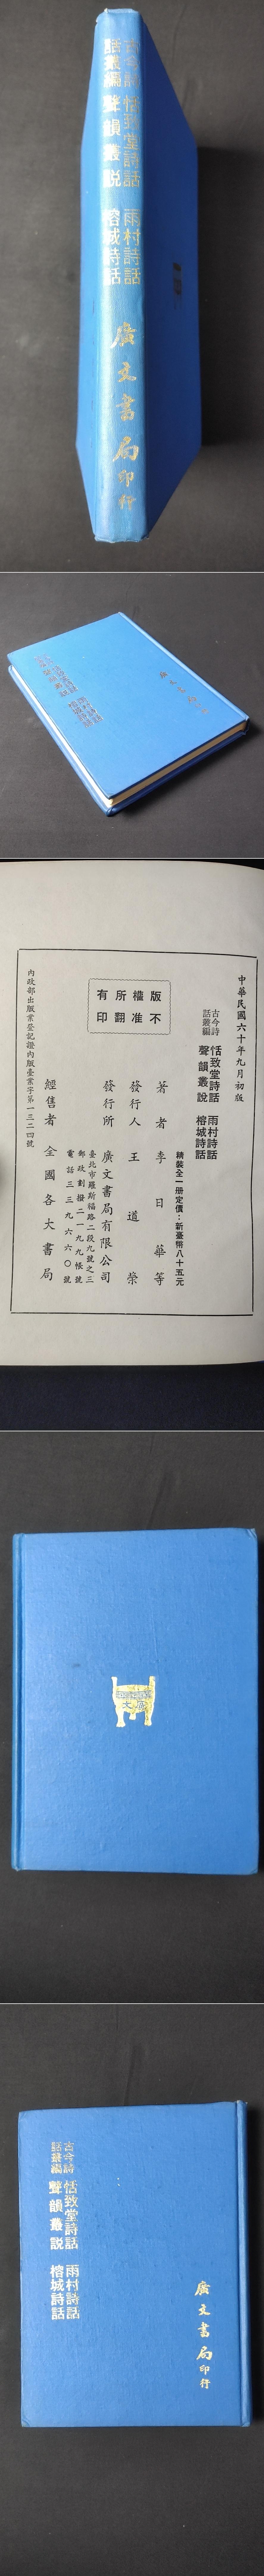 古今詩
話叢編
恬致堂詩話 雨村詩話
聲韻叢說 榕城詩話
廣文書局印行
中華民國六十年九月初版
古今詩
話叢編
恬致堂詩話 雨村詩話
聲韻叢說 榕城詩話
精裝全一册定價：新臺幣八十五元
版權所有
不准翻印
著者 李日華等
發行人 王道榮
發行所 廣文書局有限公司
臺北市羅斯福路二段九號之三
郵政劃撥二一九九帳號
電話三三九六六〇號
經售者 全國各大書局
內政部出版業登記證內版臺業字第一三二四號
古今詩
話叢編
恬致堂詩話 雨村詩話
聲韻叢說 榕城詩話
廣文書局印行